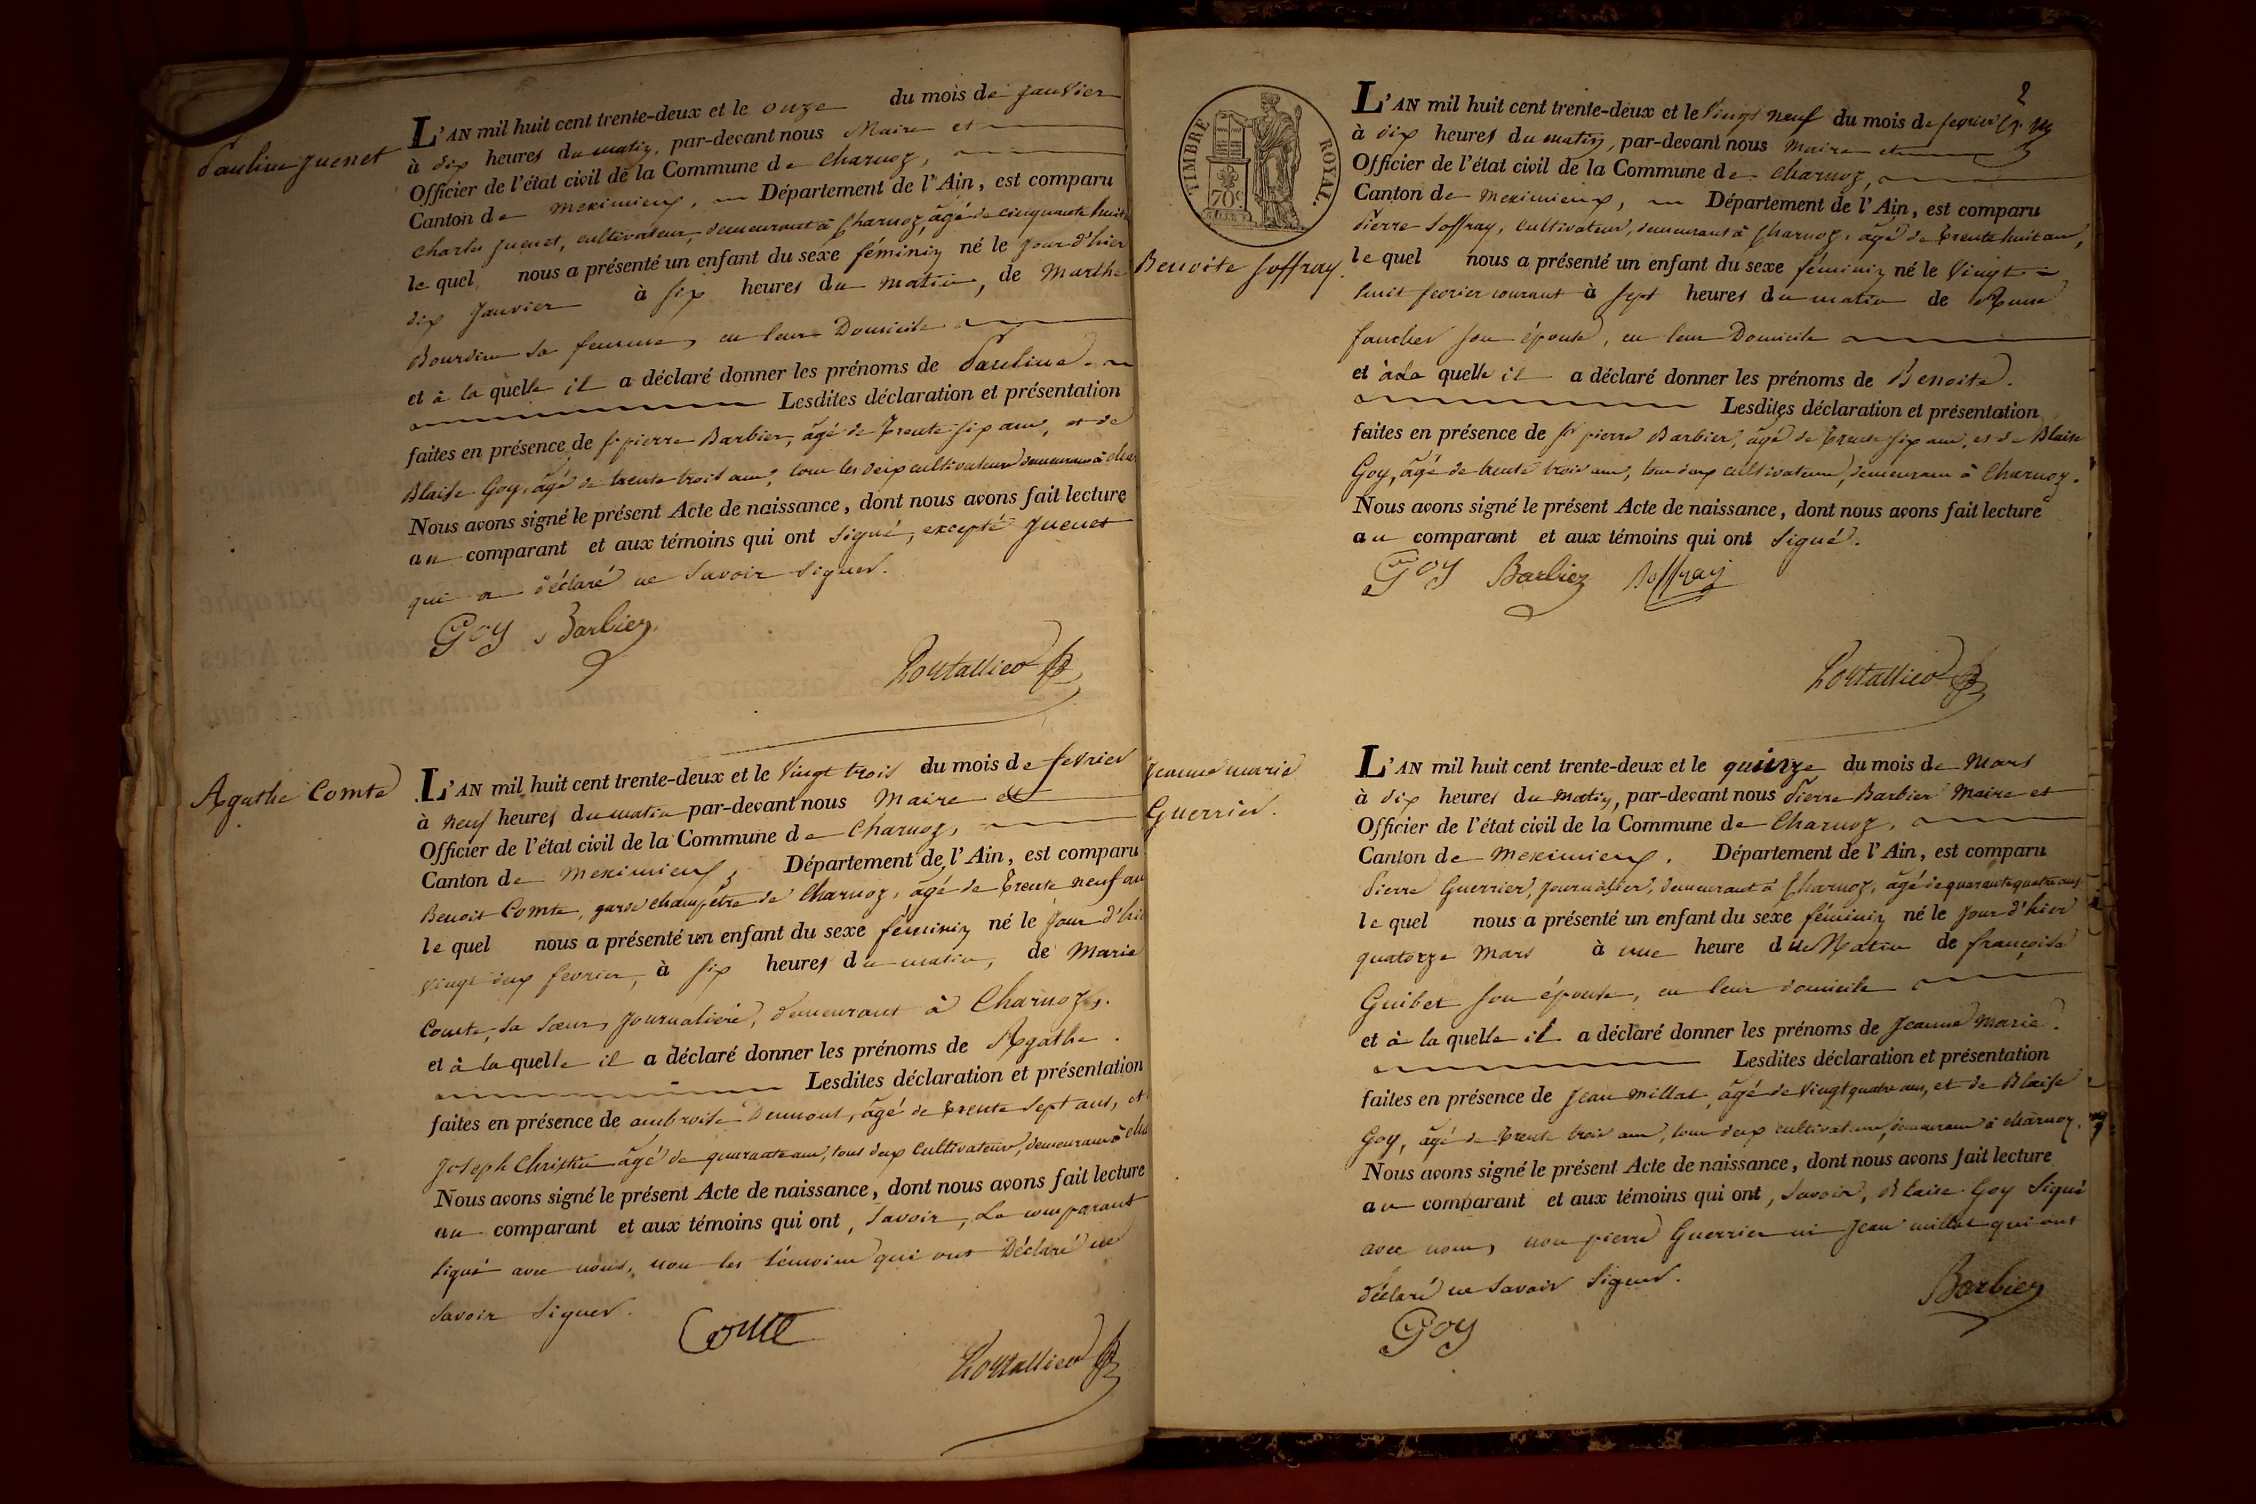 Pauline Juenet
L'AN mil huit cent trente-deux et le onze du mois de janvier
à dix heures du matin, par-devant nous Maire et
Officier de l'état civil de la Commune de Charnoz,
Canton de Meximieux, Département de l'Ain, est comparu
Charles Juenet, cultivateur, demeurant à Charnoz, âgé de cinquante huit
le quel nous a présenté un enfant du sexe féminin né le jour d'hier
dix janvier à six heures du matin, de Marthe
Bourdin sa femme, en leur Domicile
et à la quelle il a déclaré donner les prénoms de Pauline.
Lesdites déclaration et présentation
faites en présence de sr pierre Barbier, âgé de trente six ans, et de
Blaise Goy, âgé de trente trois ans, tous les deux cultivateurs demeurans à
Nous avons signé le présent Acte de naissance, dont nous avons fait lecture
au comparant et aux témoins qui ont signé, excepté Juenet
qui a déclaré ne savoir signer.
Goy Barbier
Portallier
Agathe Comte
L'AN mil huit cent trente-deux et le vingt trois du mois de fevrier
à neuf heures du matin par-devant nous Maire et
Officier de l'état civil de la Commune de Charnoz,
Canton de Meximieux, Département de l'Ain, est comparu
Benoit Comte, garde champêtre de Charnoz, âgé de trente neuf ans
le quel nous a présenté un enfant du sexe féminin né le jour d'hier
vingt deux fevrier, à six heures du matin, de Marie
Comte, sa sœur, journalière, demeurant à Charnoz.
et à la quelle il a déclaré donner les prénoms de Agathe.
Lesdites déclaration et présentation
faites en présence de ambroise, âgé de trente sept ans, et
Joseph Christin âgé de quarante ans, tous deux cultivateurs, demeurans à
Nous avons signé le présent Acte de naissance, dont nous avons fait lecture
au comparant et aux témoins qui ont, savoir, Le comparant
signé avec nous, non les témoins qui ont Déclaré ne
savoir signer.
Comte
Portallier
2
TIMBRE ROYAL.
70c
Benoite Joffray.
L'AN mil huit cent trente-deux et le vingt neuf du mois de fevrier
à dix heures du matin, par-devant nous Maire et
Officier de l'état civil de la Commune de Charnoz,
Canton de Meximieux, Département de l'Ain, est comparu
Pierre Joffray, cultivateur, demeurant à Charnoz, âgé de trente huit ans,
le quel nous a présenté un enfant du sexe féminin né le vingt
huit fevrier courant à sept heures du matin de
son épouse, en leur Domicile
et à la quelle il a déclaré donner les prénoms de Benoite.
Lesdites déclaration et présentation
faites en présence de sr pierre Barbier, âgé de trente six ans, et de Blaise
Goy, âgé de trente trois ans, tous deux cultivateurs, demeurans à Charnoz.
Nous avons signé le présent Acte de naissance, dont nous avons fait lecture
au comparant et aux témoins qui ont signé.
Goy Barbier Joffray
Portallier
Jeanne marie
Guerrier.
L'AN mil huit cent trente-deux et le quinze du mois de Mars
à dix heures du matin, par-devant nous Pierre Barbier Maire et
Officier de l'état civil de la Commune de Charnoz.
Canton de Meximieux. Département de l'Ain, est comparu
Pierre Guerrier, journalier, demeurant à Charnoz, âgé de quarante quatre ans
le quel nous a présenté un enfant du sexe féminin né le jour d'hier
quatorze Mars à une heure du Matin de françoise
Guibet son épouse, en leur domicile
et à la quelle il a déclaré donner les prénoms de Jeanne Marie.
Lesdites déclaration et présentation
faites en présence de Jean millat, âgé de vingt quatre ans, et de Blaise
Goy, âgé de trente trois ans, tous deux cultivateurs, demeurans à charnoz.
Nous avons signé le présent Acte de naissance, dont nous avons fait lecture
au comparant et aux témoins qui ont, savoir, Blaise Goy signé
avec nous, non pierre Guerrier ni Jean millat qui ont
déclaré ne savoir signer.
Barbier
Goy